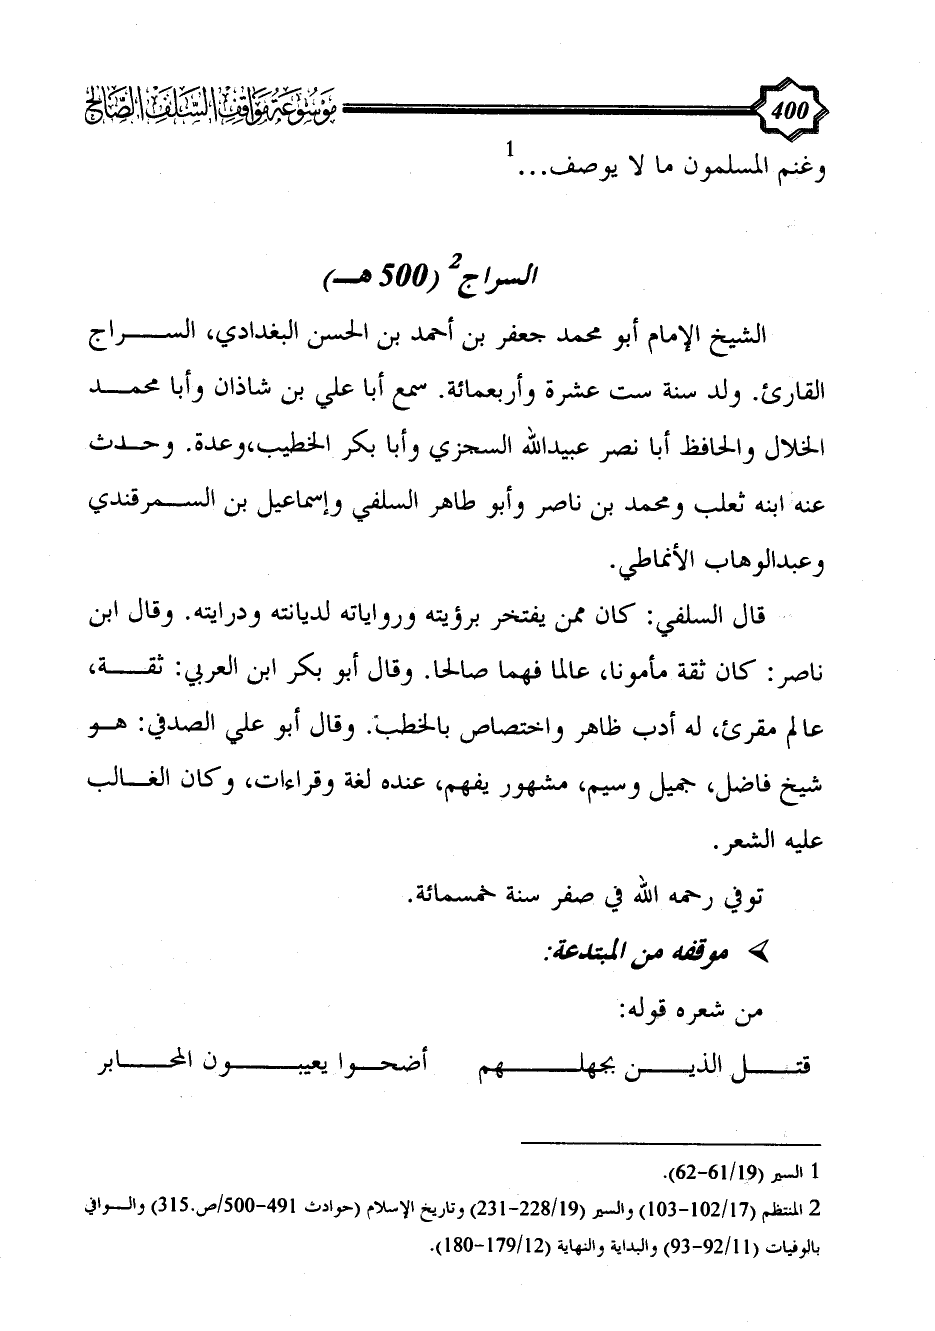 موسوعة مواقف السلف الصالح 400
وغنم المسلمون ما لا يوصف...1
السراج2 (500 هـ)
الشيخ الإمام أبو محمد جعفر بن أحمد بن الحسن البغدادي، السراج
القارئ. ولد سنة ست عشرة وأربعمائة. سمع أبا علي بن شاذان وأبا محمد
الخلال والحافظ أبا نصر عبيدالله السجزي وأبا بكر الخطيب،وعدة. وحدث
عنه ابنه ثعلب ومحمد بن ناصر وأبو طاهر السلفي وإسماعيل بن السمرقندي
وعبدالوهاب الأنماطي.
قال السلفي: كان ممن يفتخر برؤيته ورواياته لديانته ودرايته. وقال ابن
ناصر: كان ثقة مأمونا، عالما فهما صالحا. وقال أبو بكر ابن العربي: ثقة،
عالم مقرئ، له أدب ظاهر واختصاص بالخطب. وقال أبو علي الصدفي: هو
شيخ فاضل، جميل وسيم، مشهور يفهم، عنده لغة وقراءات، وكان الغالب
عليه الشعر.
توفي رحمه الله في صفر سنة خمسمائة.
➢ موقفه من المبتدعة:
من شعره قوله:
قتل الذين بجهلهم أضحوا يعيبون المحابر
1 السير (19/61-62).
2 المنتظم (17/102-103) والسير (19/228-231) وتاريخ الإسلام (حوادث 491-500/ص.315) والوافي
بالوفيات (11/92-93) والبداية والنهاية (12/179-180).